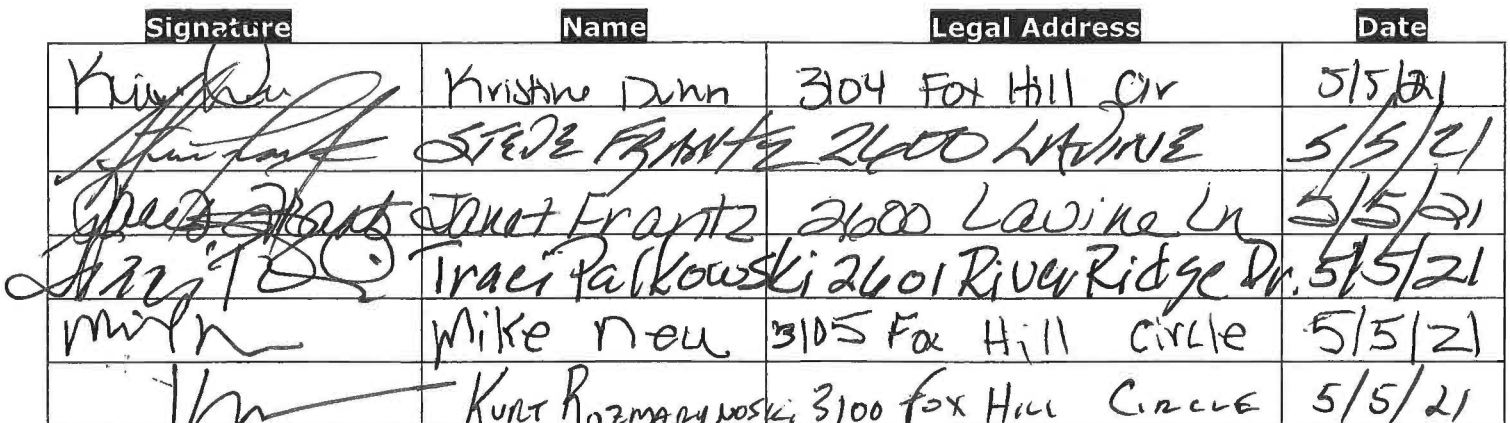 Signature Name Legal Address Date
Kristine Dunn 3104 Fox Hill Cir 5/5/21
STEVE FRANTZ 2600 LAVINE 5/5/21
Janet Frantz 2600 Lavine Ln 5/5/21
Traci Palkowski 2601 River Ridge Dr. 5/5/21
Mike Neu 3105 Fox Hill Circle 5/5/21
KURT ROZMARYNOSKi 3100 FOX HILL CIRCLE 5/5/21